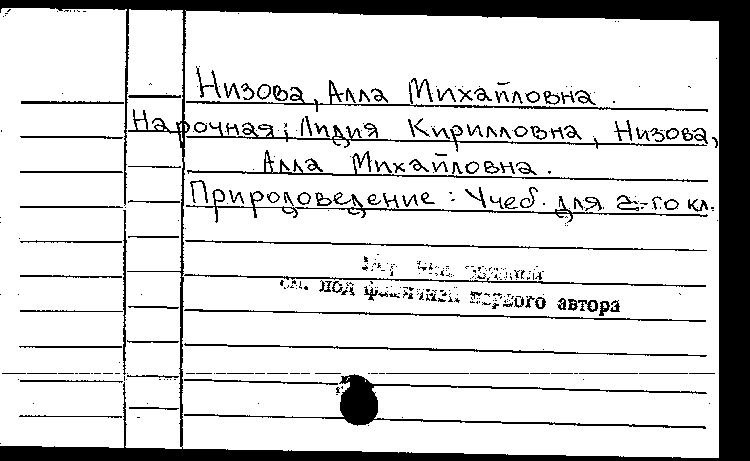 Низова, Алла Михайловна.
Нарочная, Лидия Кирилловна, Низова,
Алла Михайловна.
Природоведение: Учеб. для 2-го кл.
см. под фамилией первого автора